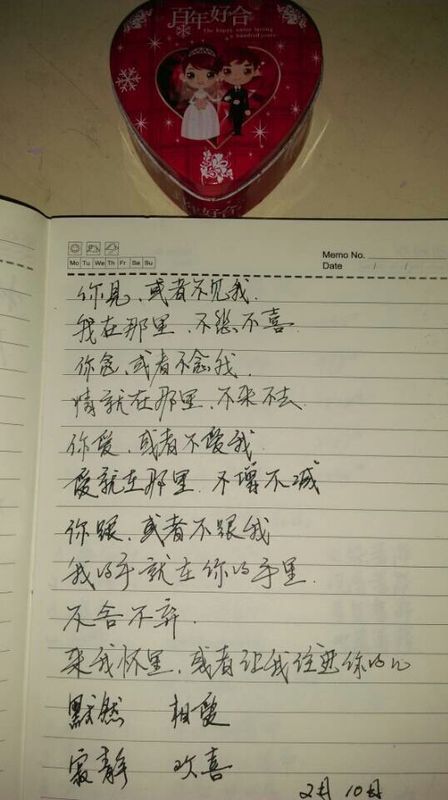 百年好合
The happy union lasting
a hundred years
百年好合
Memo No.
Mo Tu We Th Fr Sa Su
Date / /
你見,或者不见我.
我在那里,不悲不喜.
你念,或者不念我.
情就在那里,不来不去
你爱,或者不爱我.
爱就在那里.不增不减
你跟,或者不跟我
我的手就在你的手里.
不舍不弃.
来我怀里,或者让我住进你的心
默然 相爱
寂静 欢喜
2月10日